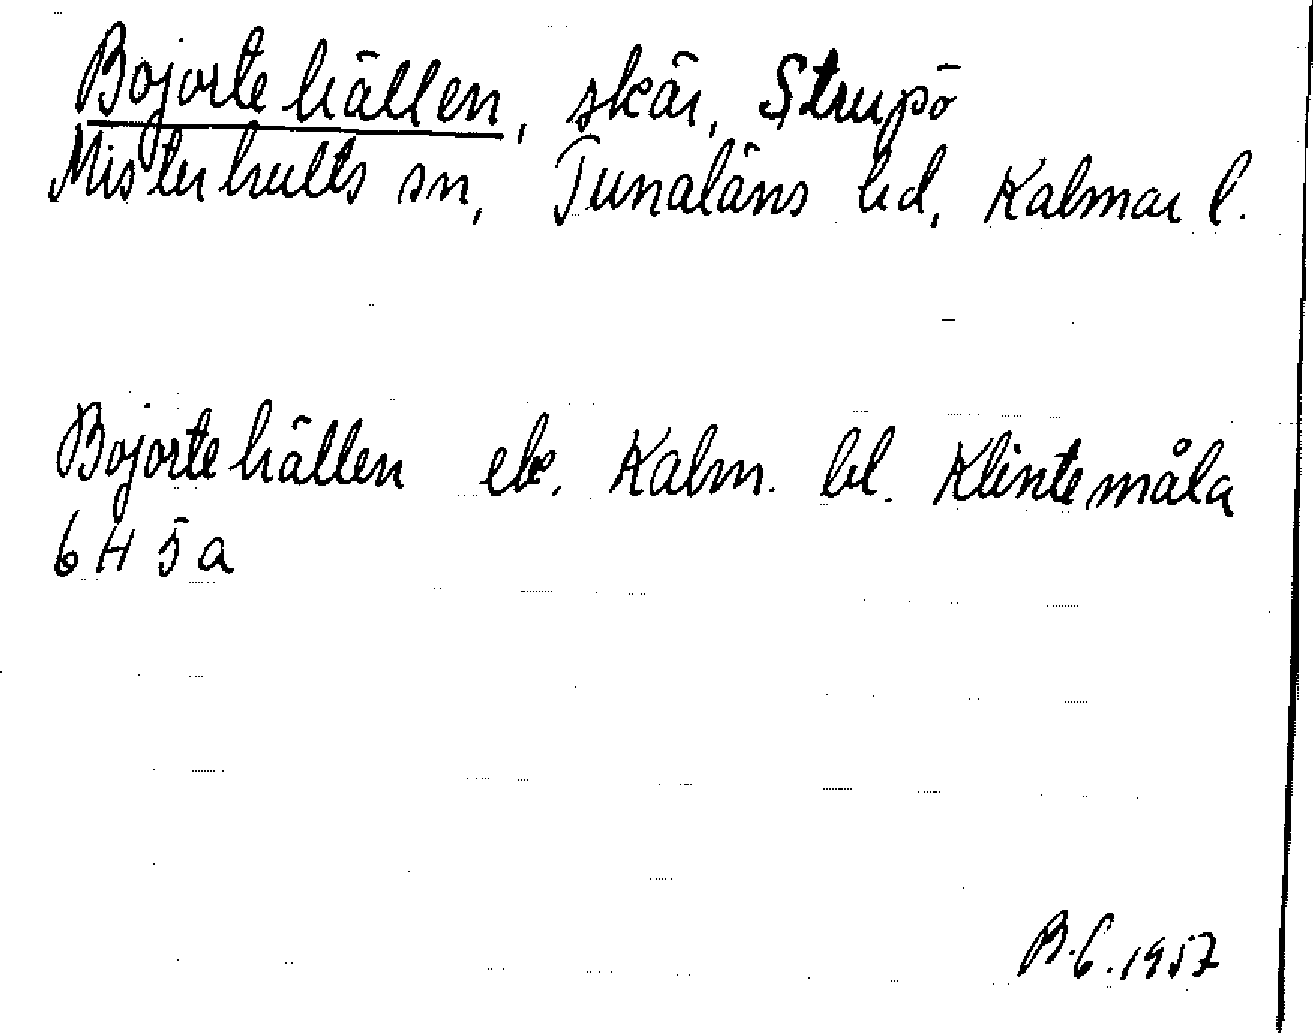 Bojortehällen, skär, Strupö
Misterhults sn, Tunaläns hd, Kalmar l.
Bojortehällen ek. Kalm. bl. Klintemåla
6 H 5 a
B.G. 1957